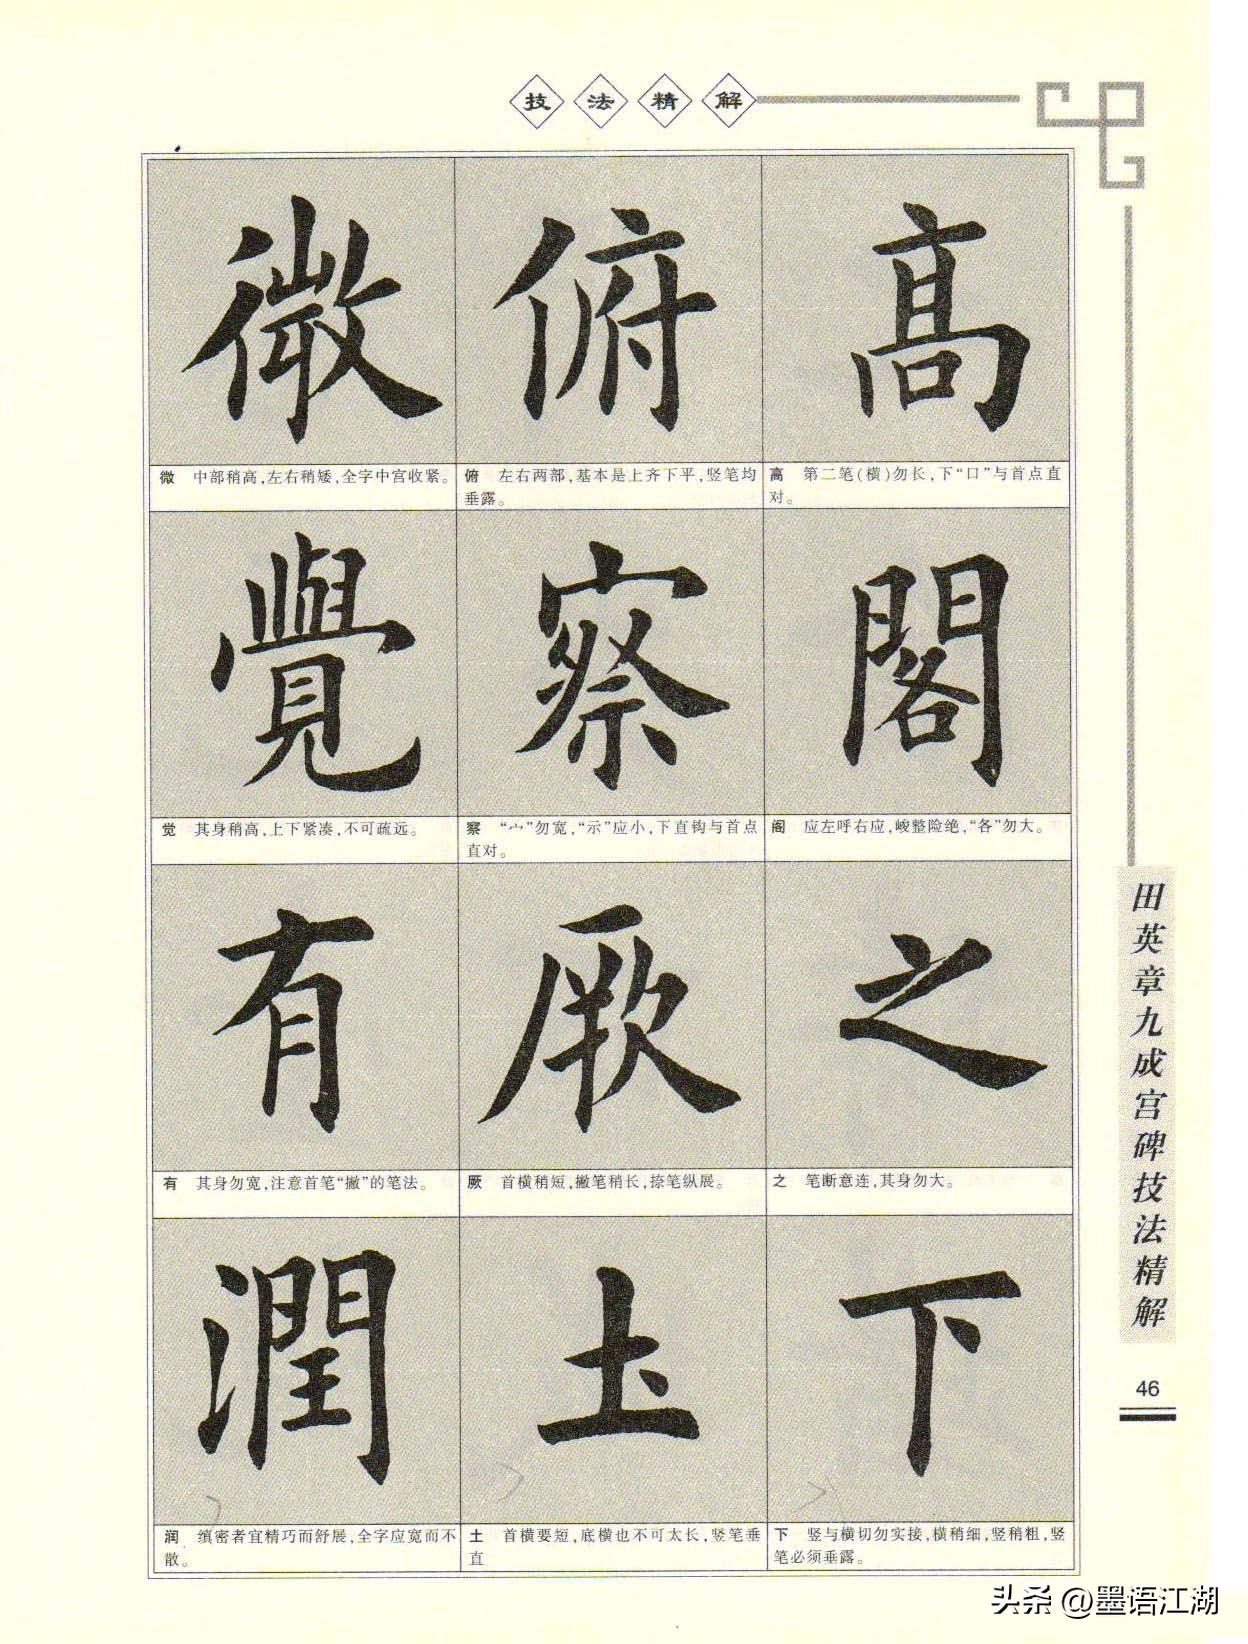 技法精解
微 俯 高
微 中部稍高,左右稍矮,全字中宫收紧。
俯 左右两部,基本是上齐下平,竖笔均
垂露。
高 第二笔(横)勿长,下“口”与首点直
对。
覺 察 閣
觉 其身稍高,上下紧凑,不可疏远。
察 “宀”勿宽,“示”应小,下直钩与首点
直对。
阁 应左呼右应,峻整险绝,“各”勿大。
有 厥 之
有 其身勿宽,注意首笔“撇”的笔法。
厥 首横稍短,撇笔稍长,捺笔纵展。
之 笔断意连,其身勿大。
潤 土 下
润 缜密者宜精巧而舒展,全字应宽而不
散。
土 首横要短,底横也不可太长,竖笔垂
直
下 竖与横切勿实接,横稍细,竖稍粗,竖
笔必须垂露。
田英章九成宫碑技法精解
46
头条 @墨语江湖